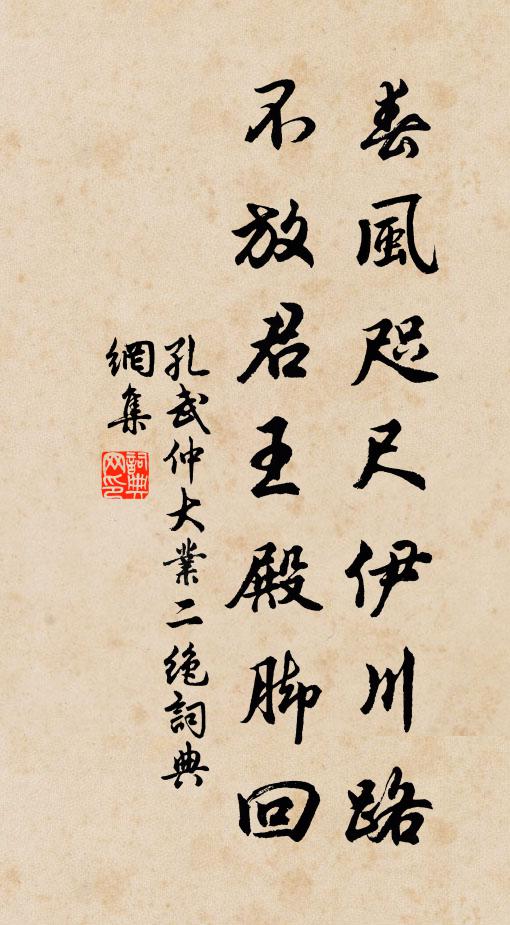 春風咫尺伊川路
不放君王殿脚回
孔武仲大業二绝詞典
網集
詞典網印